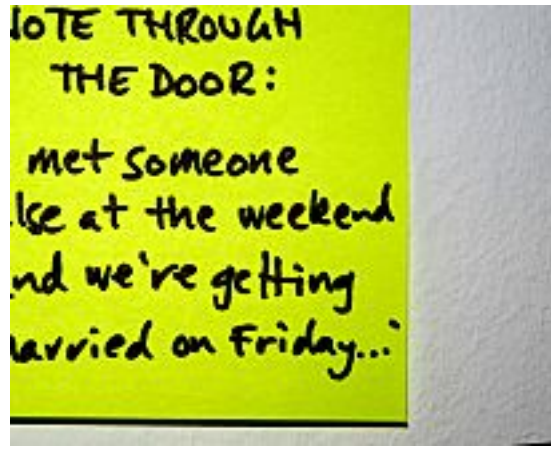 NOTE THROUGH
THE DOOR:
met someone
else at the weekend
and we're getting
married on Friday...'